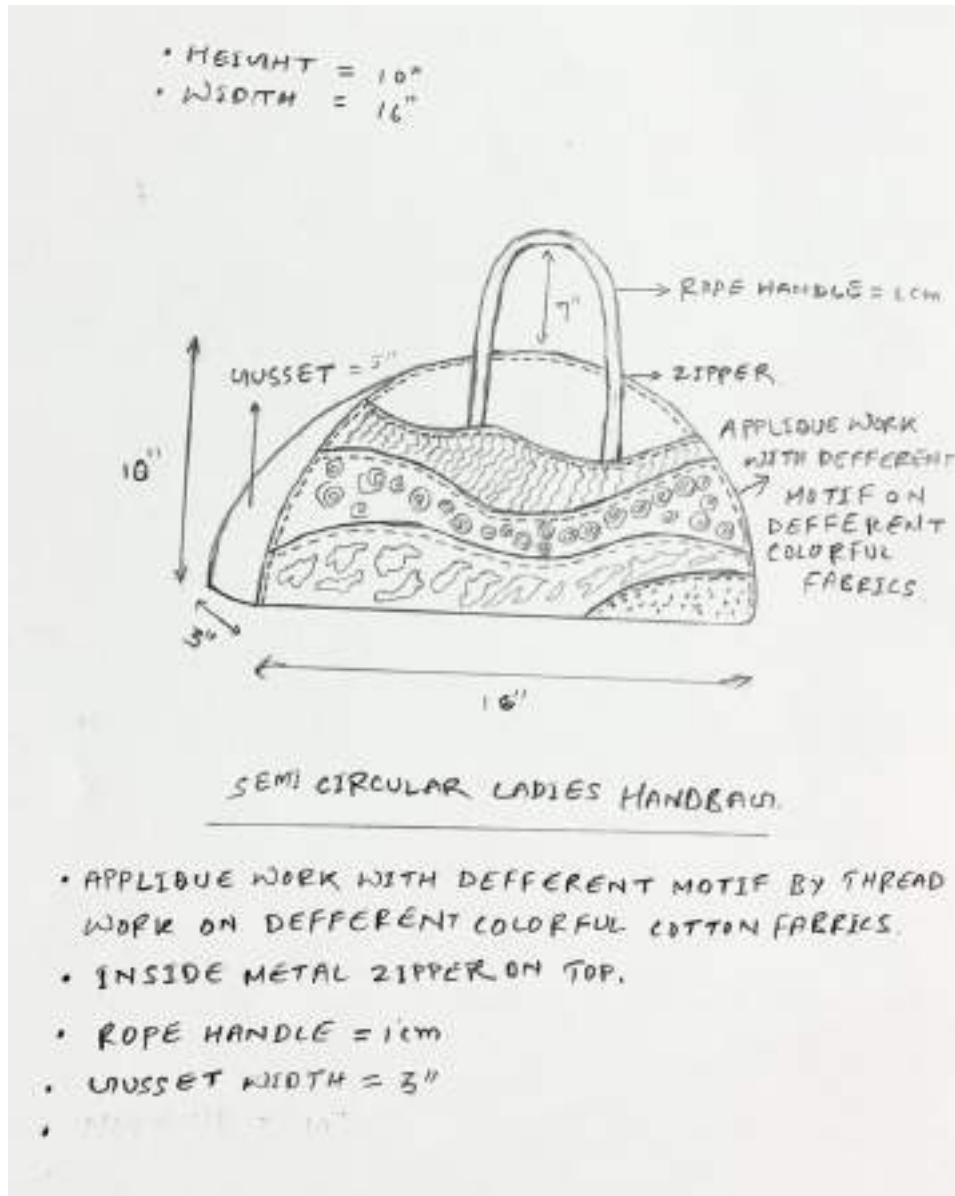 • HEIGHT = 10"
• WIDTH = 16"
ROPE HANDLE = 1cm
7"
GUSSET = 3"
ZIPPER
APPLIQUE WORK
WITH DEFFERENT
MOTIF ON
DEFFERENT
COLORFUL
FABRICS
10"
3"
16"
SEMI CIRCULAR LADIES HANDBAG.
• APPLIQUE WORK WITH DEFFERENT MOTIF BY THREAD
WORK ON DEFFERENT COLORFUL COTTON FABRICS.
• INSIDE METAL ZIPPER ON TOP.
• ROPE HANDLE = 1cm
• GUSSET WIDTH = 3"
•